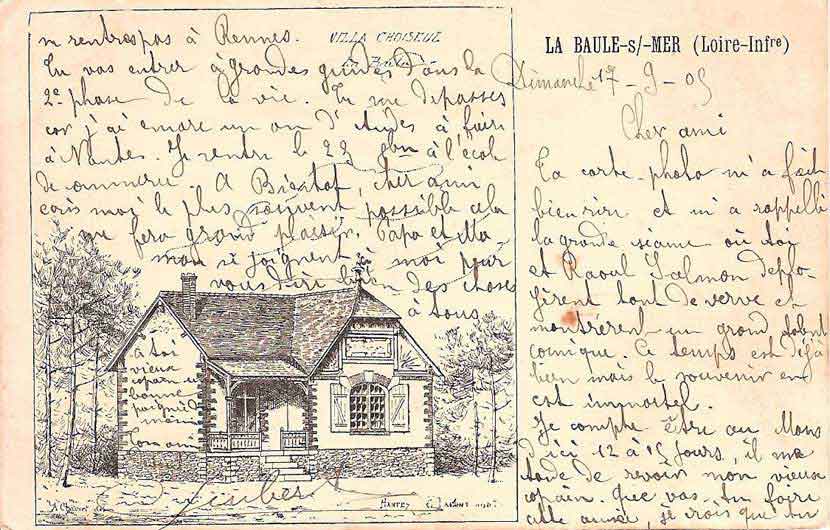 LA BAULE-s/-MER (Loire-Infre)
Dimanche 17-9-05
Cher ami
Ta carte-photo m'a fait
bien rire et m'a rappelé
la grande séance où toi
et Raoul Salmon déplo-
yèrent tant de verve et
montrèrent un grand talent
comique. Ce temps est déjà
bien mais le souvenir en
est immortel.
Je compte être au Mans
d'ici 12 à 15 jours, il me
tarde de revoir mon vieux
copain. Que vas-tu faire
cette année je crois que tu
ne rentres pas à Rennes.
Tu vas entrer à grandes guides dans la
2e phase de la vie. Tu me dépasses
car j'ai encore un an d'études à faire
à Nantes. Je rentre le 22 8bre à l'école
de commerce. A Bientôt, cher ami
écris moi le plus souvent possible cela
me fera grand plaisir. Papa et Ma-
man se joignent à moi pour
vous dire bien des choses
à tous
à toi
vieux
copain une
bonne
poignée de
main
Ton ami
VILLA CHOISEUL
La Baule
NANTES